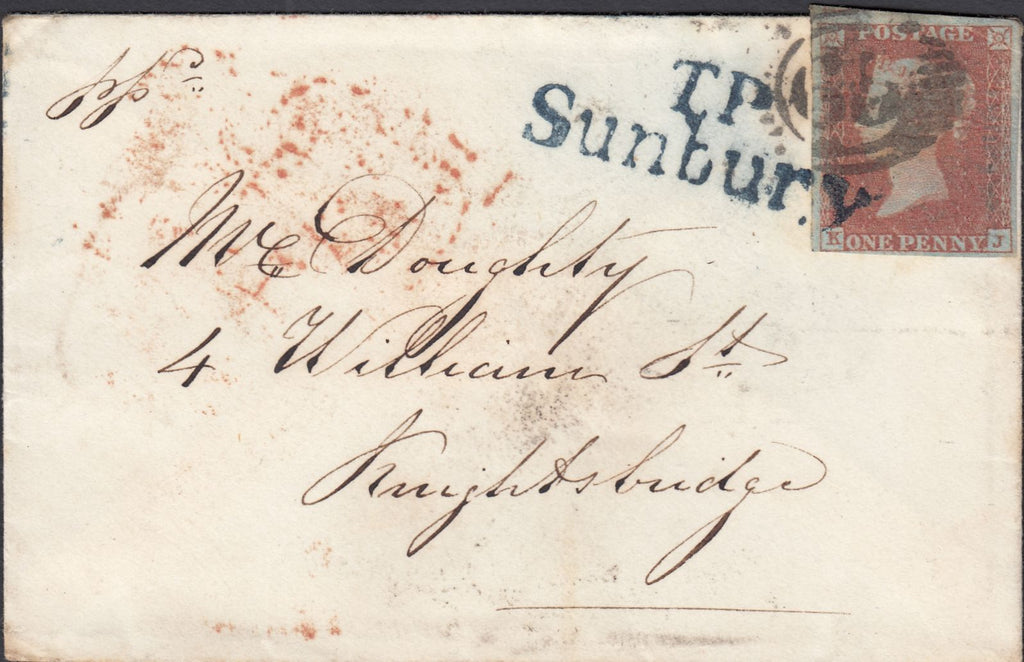 pp c
T.P
Sunbury
POSTAGE
K ONE PENNY J
Mr Doughty
4 William St
Knightsbridge